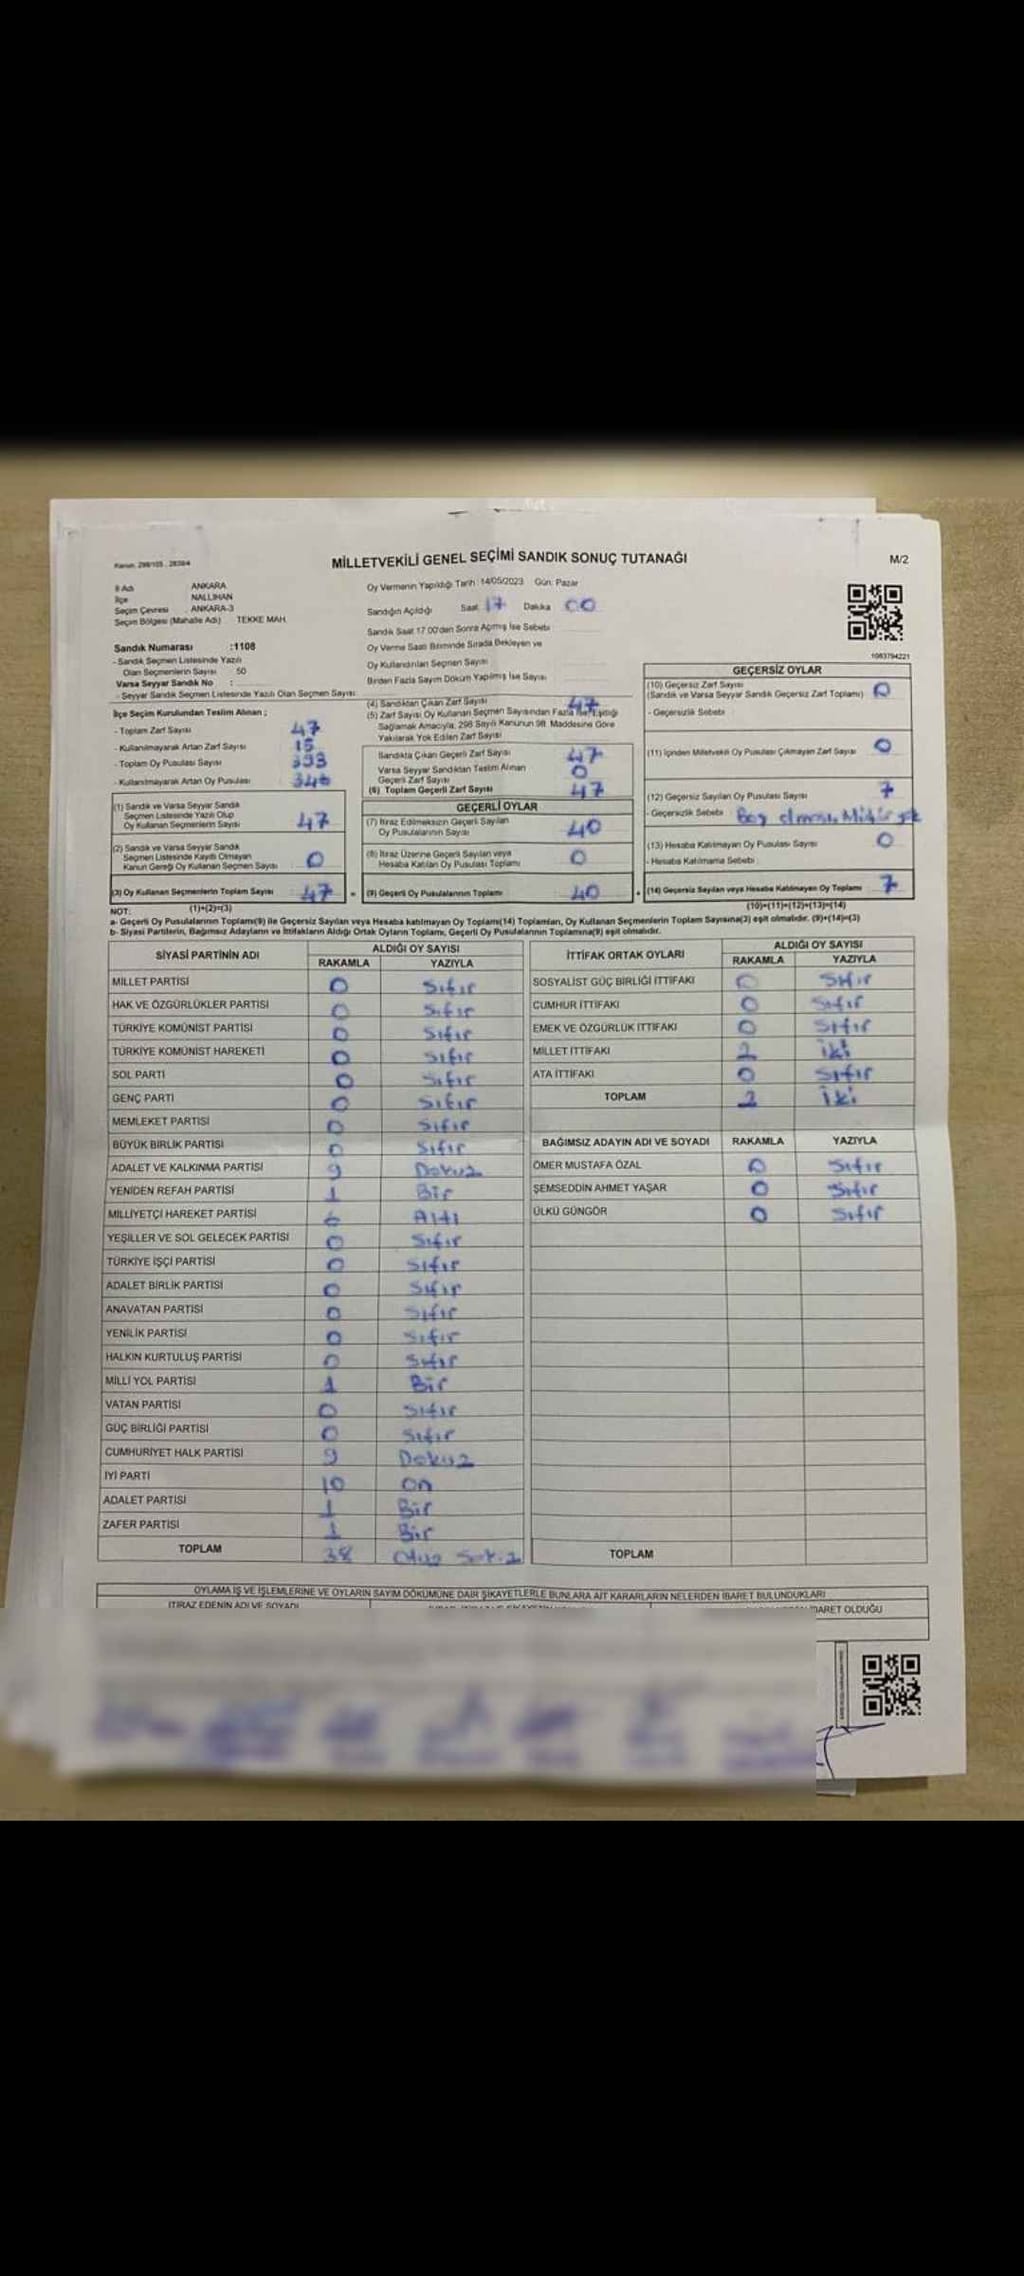 Kanun: 298/105 , 2839/4
MİLLETVEKİLİ GENEL SEÇİMİ SANDIK SONUÇ TUTANAĞI
M/2
İl Adı ANKARA
İlçe NALLIHAN
Seçim Çevresi ANKARA-3
Seçim Bölgesi (Mahalle Adı) TEKKE MAH.
Oy Vermenin Yapıldığı Tarih: 14/05/2023 Gün: Pazar
Sandığın Açıldığı Saat 17 Dakika 00
Sandık Saat 17:00'den Sonra Açılmış İse Sebebi
Oy Verme Saati Bitiminde Sırada Bekleyen ve
Oy Kullandırılan Seçmen Sayısı
Birden Fazla Sayım Döküm Yapılmış İse Sayısı
1083794221
Sandık Numarası :1108
- Sandık Seçmen Listesinde Yazılı
Olan Seçmenlerin Sayısı 50
Varsa Seyyar Sandık No :
- Seyyar Sandık Seçmen Listesinde Yazılı Olan Seçmen Sayısı
İlçe Seçim Kurulundan Teslim Alınan ;
- Toplam Zarf Sayısı 47
- Kullanılmayarak Artan Zarf Sayısı 15
- Toplam Oy Pusulası Sayısı 393
- Kullanılmayarak Artan Oy Pusulası 346
(1) Sandık ve Varsa Seyyar Sandık
Seçmen Listesinde Yazılı Olup
Oy Kullanan Seçmenlerin Sayısı 47
(2) Sandık ve Varsa Seyyar Sandık
Seçmen Listesinde Kayıtlı Olmayan
Kanun Gereği Oy Kullanan Seçmen Sayısı 0
(3) Oy Kullanan Seçmenlerin Toplam Sayısı 47 =
(1)+(2)=(3)
(4) Sandıktan Çıkan Zarf Sayısı 47
(5) Zarf Sayısı Oy Kullanan Seçmen Sayısından Fazla İse, Eşitliği
Sağlamak Amacıyla, 298 Sayılı Kanunun 98. Maddesine Göre
Yakılarak Yok Edilen Zarf Sayısı
Sandıkta Çıkan Geçerli Zarf Sayısı 47
Varsa Seyyar Sandıktan Teslim Alınan
Geçerli Zarf Sayısı 0
(6) Toplam Geçerli Zarf Sayısı 47
GEÇERLİ OYLAR
(7) İtiraz Edilmeksizin Geçerli Sayılan
Oy Pusulalarının Sayısı 40
(8) İtiraz Üzerine Geçerli Sayılan veya
Hesaba Katılan Oy Pusulası Toplamı 0
(9) Geçerli Oy Pusulalarının Toplamı 40 +
GEÇERSİZ OYLAR
(10) Geçersiz Zarf Sayısı
(Sandık ve Varsa Seyyar Sandık Geçersiz Zarf Toplamı) 0
- Geçersizlik Sebebi
(11) İçinden Milletvekili Oy Pusulası Çıkmayan Zarf Sayısı 0
(12) Geçersiz Sayılan Oy Pusulası Sayısı 7
- Geçersizlik Sebebi Boş olması, Mühür yok
(13) Hesaba Katılmayan Oy Pusulası Sayısı 0
- Hesaba Katılmama Sebebi
(14) Geçersiz Sayılan veya Hesaba Katılmayan Oy Toplamı 7
(10)+(11)+(12)+(13)=(14)
NOT:
a- Geçerli Oy Pusulalarının Toplamı(9) ile Geçersiz Sayılan veya Hesaba katılmayan Oy Toplamı(14) Toplamları, Oy Kullanan Seçmenlerin Toplam Sayısına(3) eşit olmalıdır. (9)+(14)=(3)
b- Siyasi Partilerin, Bağımsız Adayların ve İttifakların Aldığı Ortak Oyların Toplamı, Geçerli Oy Pusulalarının Toplamına(9) eşit olmalıdır.
SİYASİ PARTİNİN ADI ALDIĞI OY SAYISI
RAKAMLA YAZIYLA
MİLLET PARTİSİ 0 Sıfır
HAK VE ÖZGÜRLÜKLER PARTİSİ 0 Sıfır
TÜRKİYE KOMÜNİST PARTİSİ 0 Sıfır
TÜRKİYE KOMÜNİST HAREKETİ 0 Sıfır
SOL PARTİ 0 Sıfır
GENÇ PARTİ 0 Sıfır
MEMLEKET PARTİSİ 0 Sıfır
BÜYÜK BİRLİK PARTİSİ 0 Sıfır
ADALET VE KALKINMA PARTİSİ 9 Dokuz
YENİDEN REFAH PARTİSİ 1 Bir
MİLLİYETÇİ HAREKET PARTİSİ 6 Altı
YEŞİLLER VE SOL GELECEK PARTİSİ 0 Sıfır
TÜRKİYE İŞÇİ PARTİSİ 0 Sıfır
ADALET BİRLİK PARTİSİ 0 Sıfır
ANAVATAN PARTİSİ 0 Sıfır
YENİLİK PARTİSİ 0 Sıfır
HALKIN KURTULUŞ PARTİSİ 0 Sıfır
MİLLİ YOL PARTİSİ 1 Bir
VATAN PARTİSİ 0 Sıfır
GÜÇ BİRLİĞİ PARTİSİ 0 Sıfır
CUMHURİYET HALK PARTİSİ 9 Dokuz
İYİ PARTİ 10 On
ADALET PARTİSİ 1 Bir
ZAFER PARTİSİ 1 Bir
TOPLAM 38 Otuz Sekiz
İTTİFAK ORTAK OYLARI ALDIĞI OY SAYISI
RAKAMLA YAZIYLA
SOSYALİST GÜÇ BİRLİĞİ İTTİFAKI 0 Sıfır
CUMHUR İTTİFAKI 0 Sıfır
EMEK VE ÖZGÜRLÜK İTTİFAKI 0 Sıfır
MİLLET İTTİFAKI 2 İki
ATA İTTİFAKI 0 Sıfır
TOPLAM 2 İki
BAĞIMSIZ ADAYIN ADI VE SOYADI RAKAMLA YAZIYLA
ÖMER MUSTAFA ÖZAL 0 Sıfır
ŞEMSEDDİN AHMET YAŞAR 0 Sıfır
ÜLKÜ GÜNGÖR 0 Sıfır
TOPLAM
OYLAMA İŞ VE İŞLEMLERİNE VE OYLARIN SAYIM DÖKÜMÜNE DAİR ŞİKAYETLERLE BUNLARA AİT KARARLARIN NELERDEN İBARET BULUNDUKLARI
İTİRAZ EDENİN ADI VE SOYADI
İBARET OLDUĞU